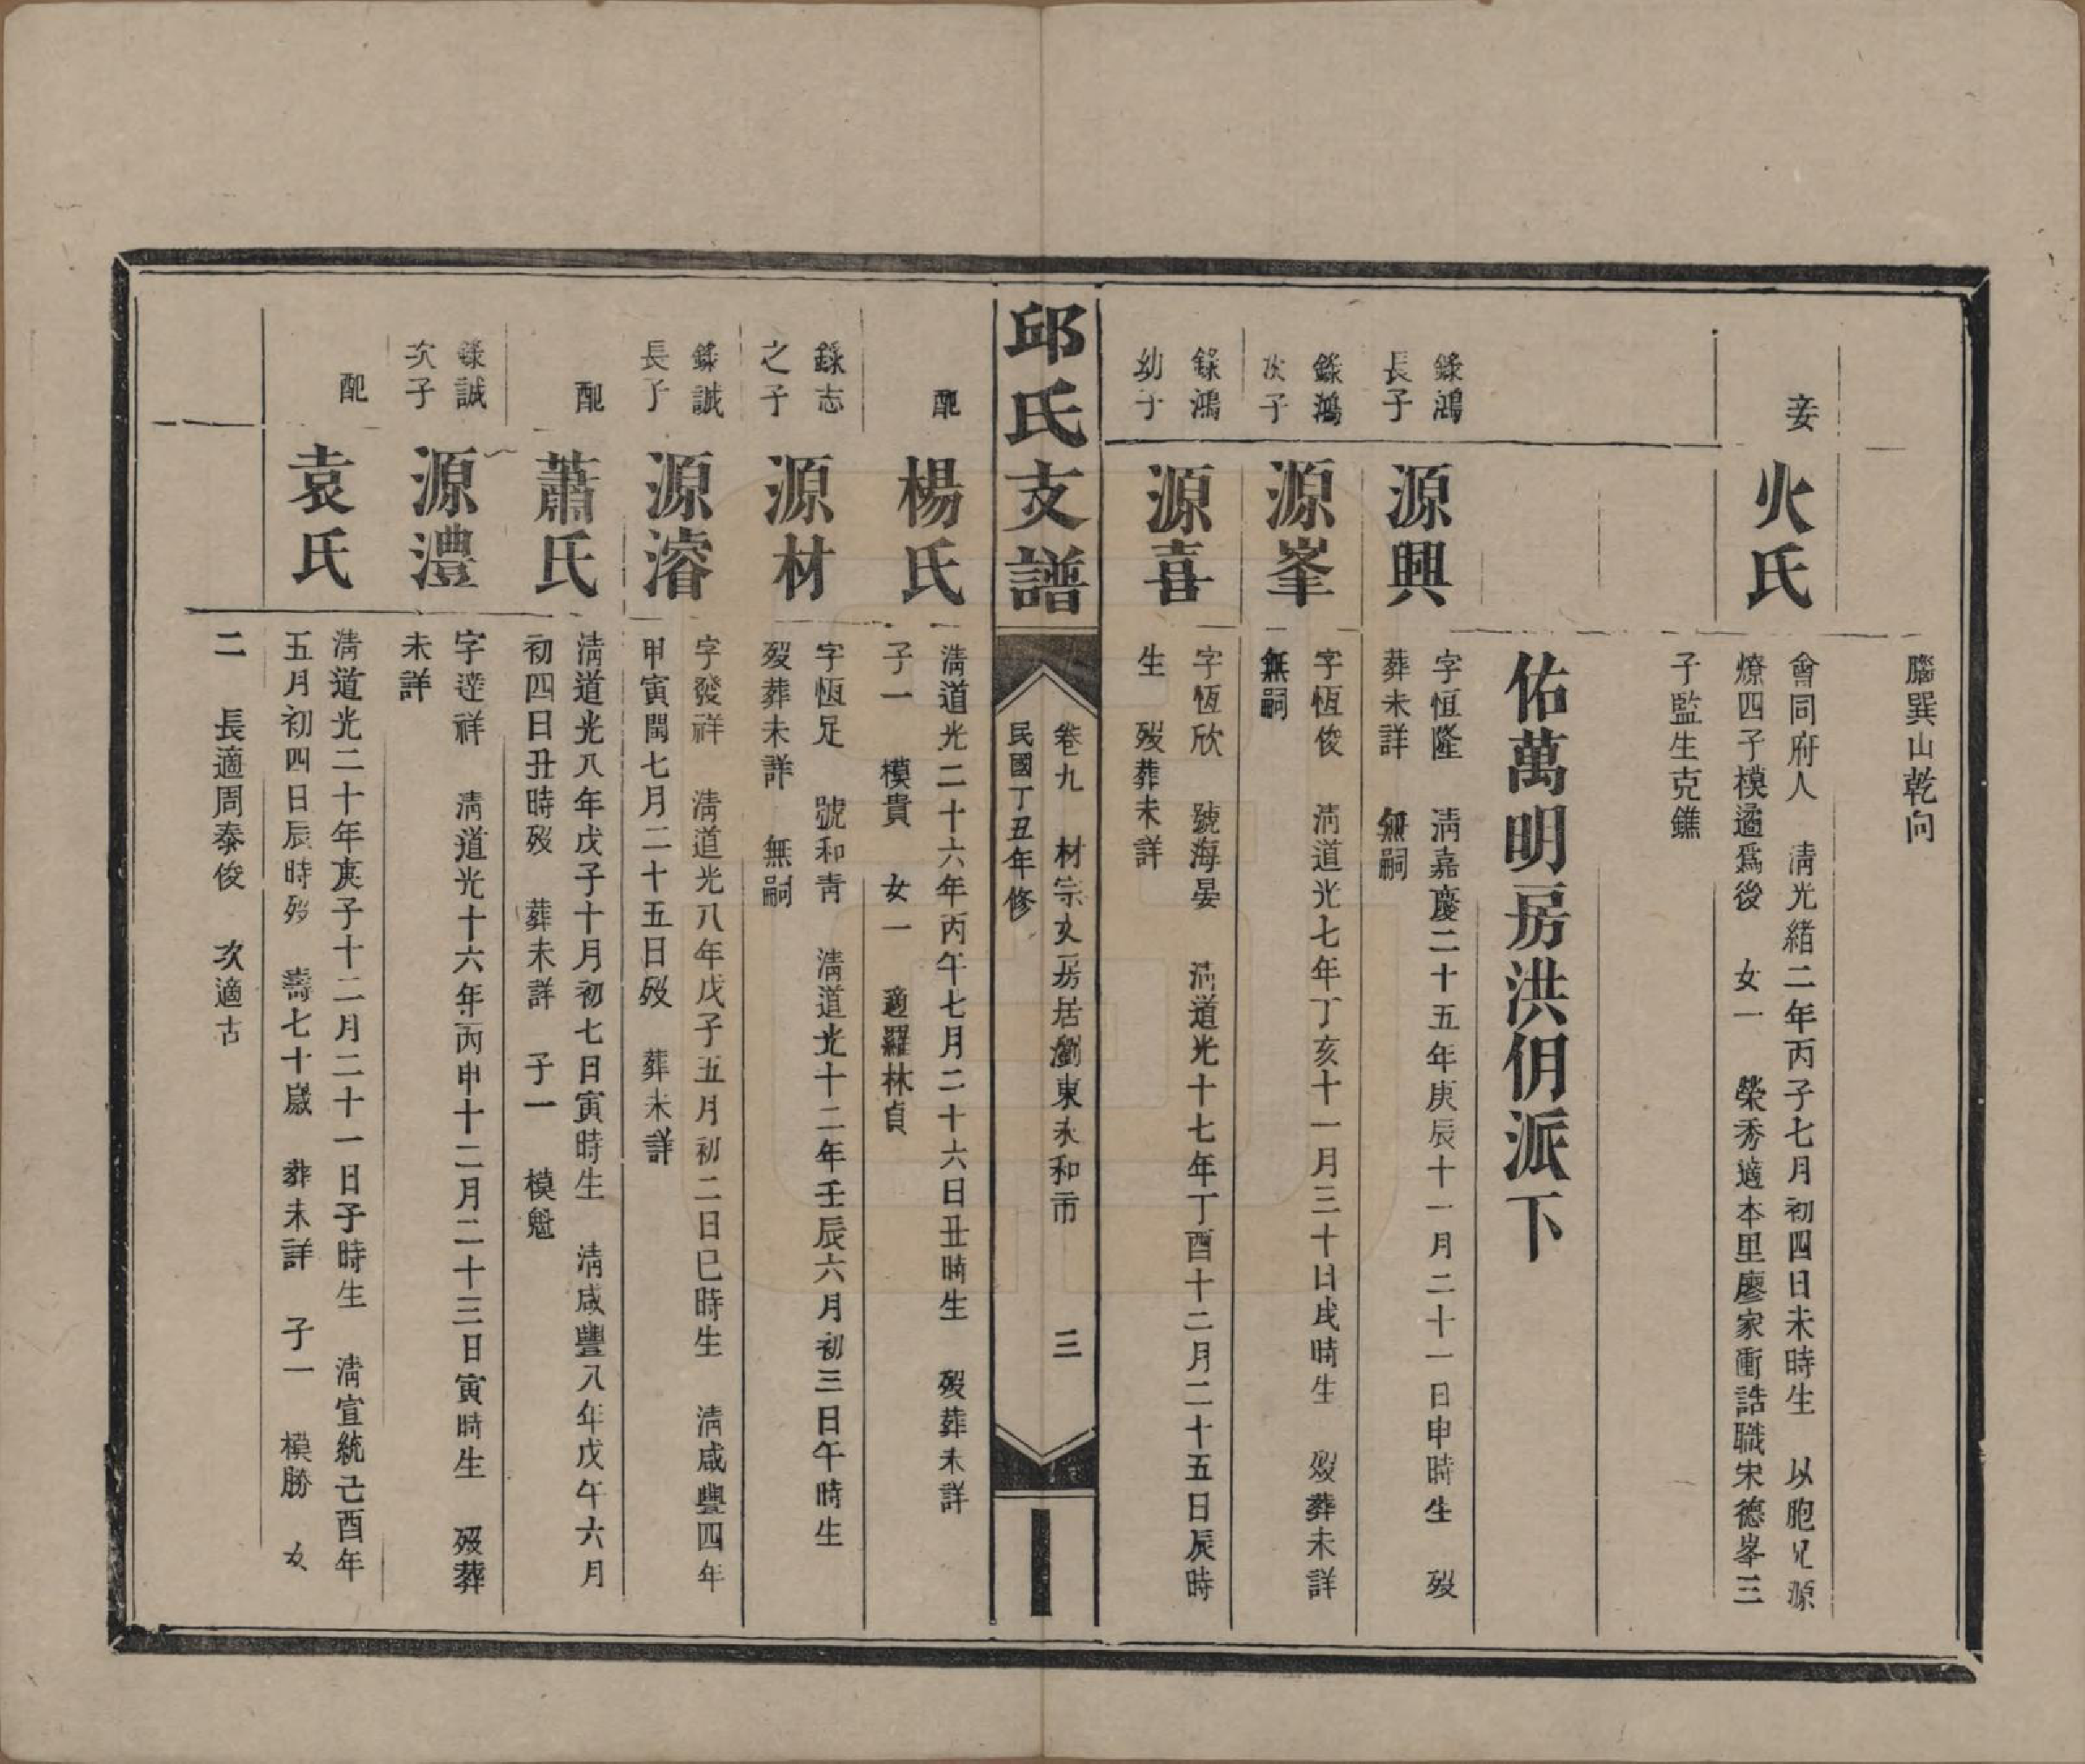 腦巽山乾向
妾
火氏
會同府人　清光緒二年丙子七月初四日未時生　以胞兄源
燎四子模遹爲後　女一　榮秀適本里廖家衝誥職宋德峯三
子監生克鐎
佑萬明房洪佣派下
錄鴻
長子
源興
字恒隆　清嘉慶二十五年庚辰十一月二十一日申時生　歿
葬未詳　無嗣
錄鴻
次子
源峯
字恆俊　清道光七年丁亥十一月三十日戌時生　歿葬未詳
無嗣
錄鴻
幼子
源喜
字恆欣　號海晏　清道光十七年丁酉十二月二十五日辰時
生　歿葬未詳
邱氏支譜
卷九　材宗文房居瀏東永和市　三
民國丁丑年修
配
楊氏
清道光二十六年丙午七月二十六日丑時生　歿葬未詳
子一　模貴　女一　適羅林貞
錄志
之子
源材
字恆足　號和青　清道光十二年壬辰六月初三日午時生
歿葬未詳　無嗣
錄誠
長子
源濬
字發祥　清道光八年戊子五月初二日巳時生　清咸豐四年
甲寅閏七月二十五日歿　葬未詳
配
蕭氏
清道光八年戊子十月初七日寅時生　清咸豐八年戊午六月
初四日丑時歿　葬未詳　子一　模魁
錄誠
次子
源澧
字達祥　清道光十六年丙申十二月二十三日寅時生　歿葬
未詳
配
袁氏
清道光二十年庚子十二月二十一日子時生　清宣統己酉年
五月初四日辰時歿　壽七十歲　葬未詳　子一　模勝　女
二　長適周泰俊　次適古